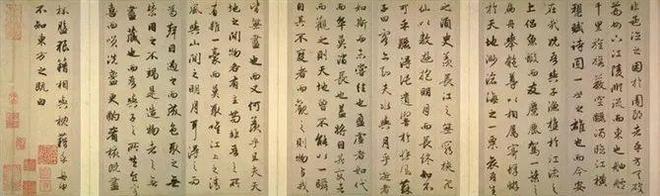 非孟德之困於周郎者乎方其破
荊州下江陵順流而東也舳艫
千里旌旗蔽空釃酒臨江橫
槊賦詩固一世之雄也而今安
在哉況吾與子漁樵於江渚之
上侶魚蝦而友麋鹿駕一葉之
扁舟舉匏尊以相屬寄蜉蝣
於天地渺滄海之一粟哀吾生
之須臾羨長江之無窮挾飛
仙以遨遊抱明月而長終知不
可乎驟得託遺響於悲風蘇
子曰客亦知夫水與月乎逝者
如斯而未嘗往也盈虛者如彼
而卒莫消長也蓋將自其變者
而觀之則天地曾不能以一瞬
自其不變者而觀之則物與我
皆無盡也而又何羨乎且夫天
地之間物各有主苟非吾之所
有雖一毫而莫取惟江上之清
風與山間之明月耳得之而
為聲目遇之而成色取之無
禁用之不竭是造物者之無
盡藏也而吾與子之所共食客
喜而笑洗盞更酌肴核既盡
杯盤狼籍相與枕藉乎舟中
不知東方之既白